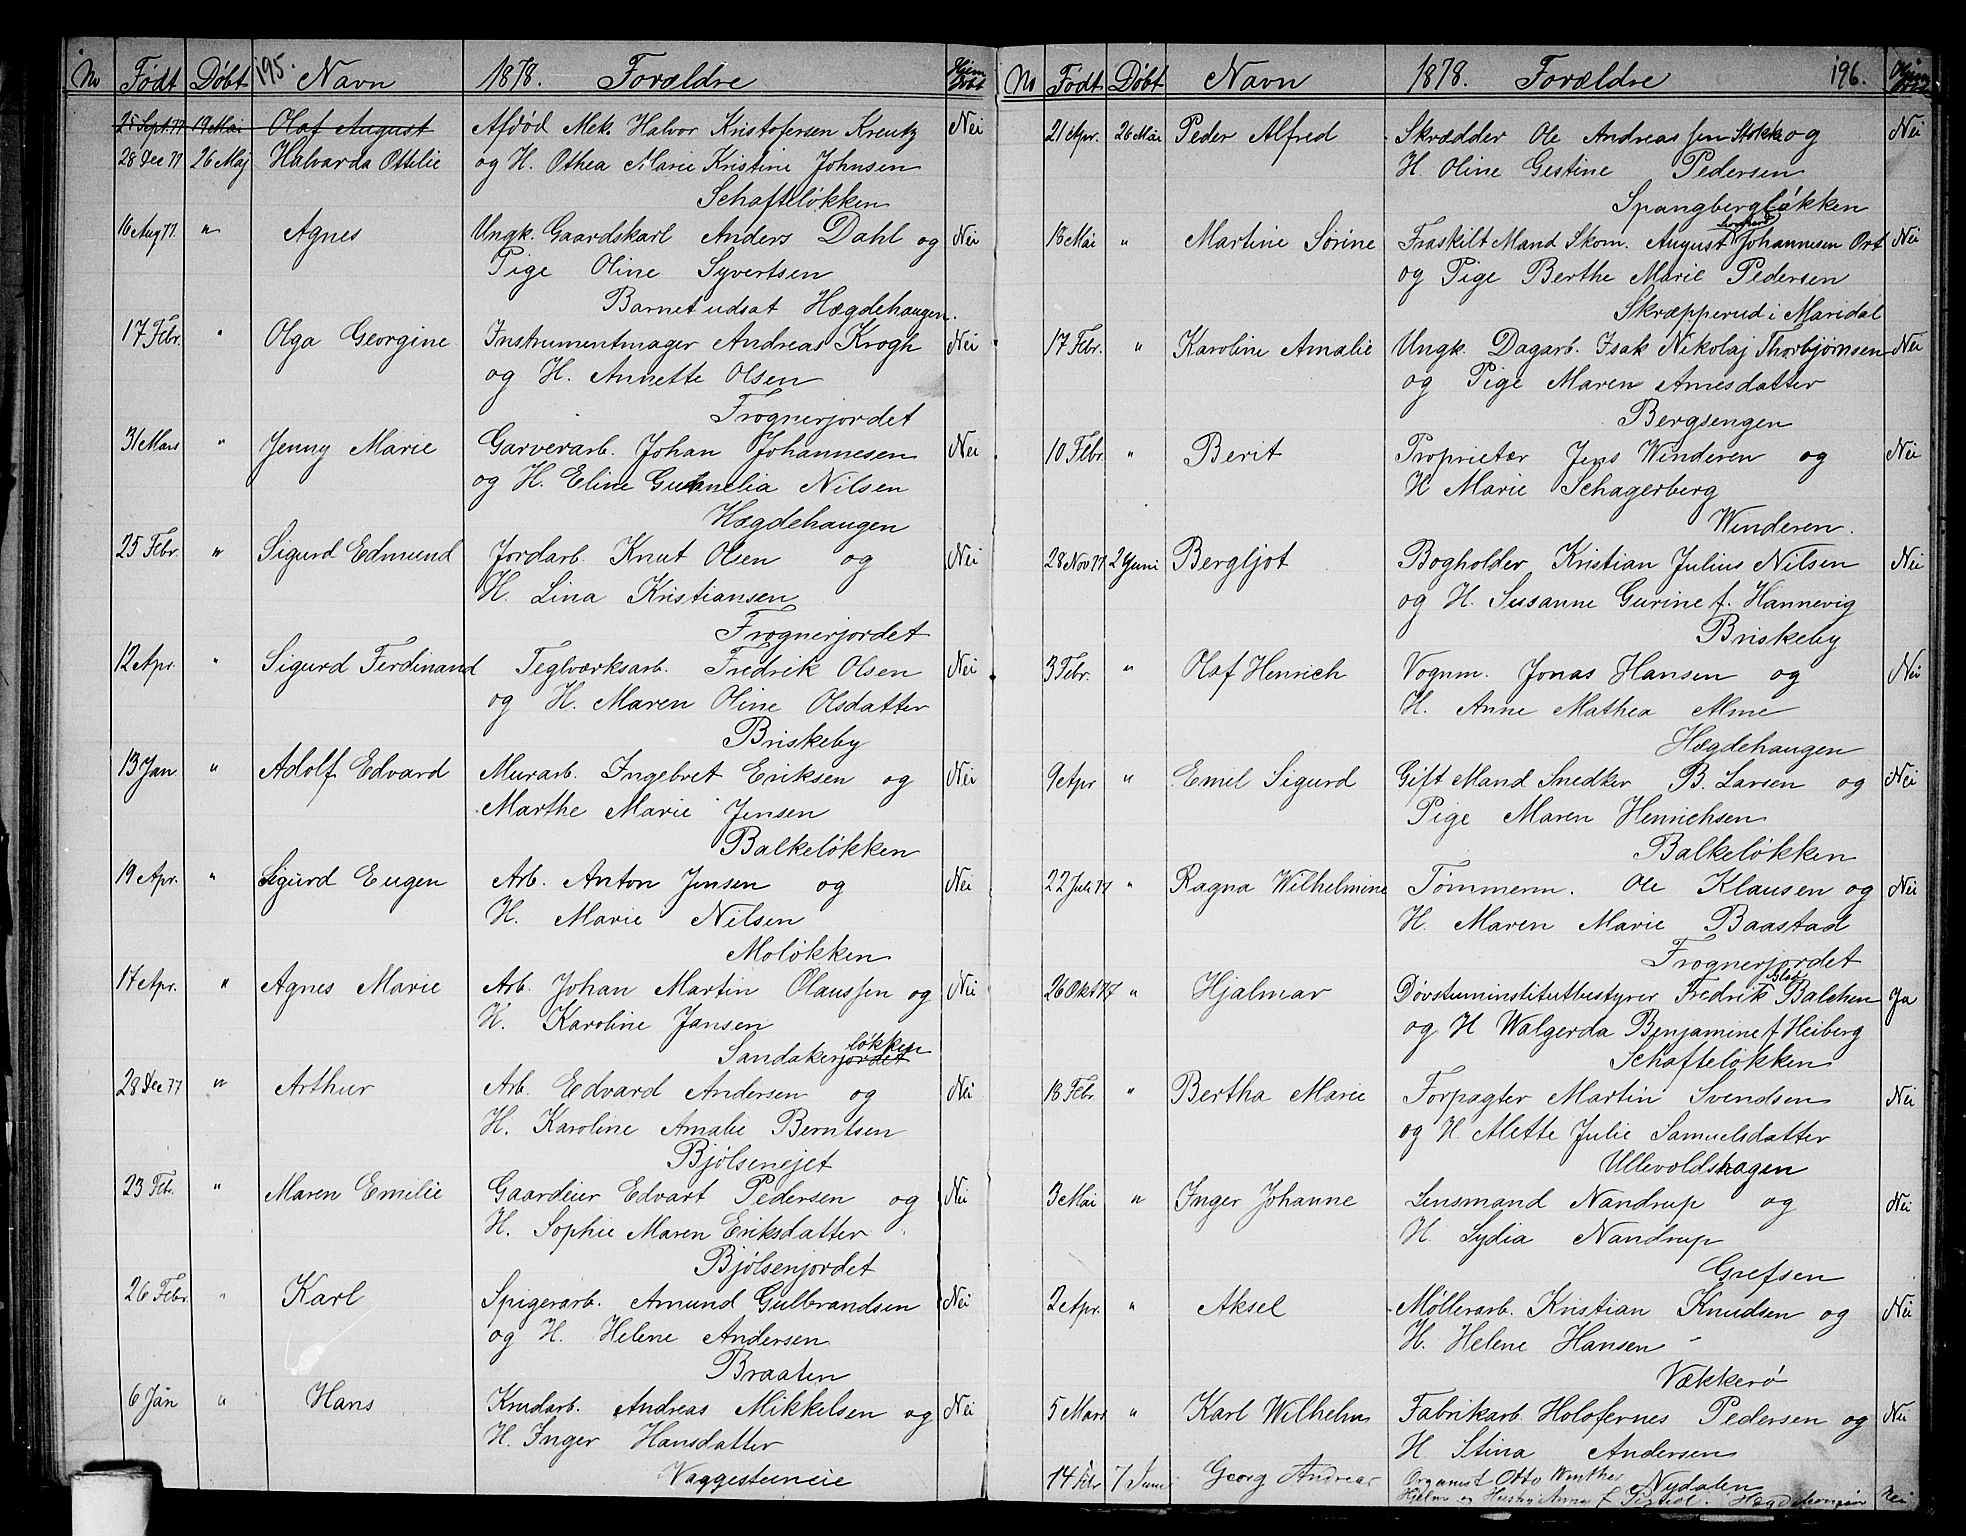 No Født Døbt 195. Navn 1878. Forældre Hjem døbt
25 Sept. 77 19 Mai Olaf August Afdød Mek. Halvor Kristofersen Kreutz Nei
28 Dec 77 26 Maj Halvarda Ottilie og H. Othea Marie Kristine Johnsen
Schafteløkken
16 Aug 77. " Agnes Ungk. Gaardskarl Anders Dahl og Nei
Pige Oline Syvertsen
Barnet udsat Hægdehaugen.
17 Febr. " Olga Georgine Instrumentmager Andreas Krogh Nei
og H. Annette Olsen
Frognerjordet
31 Mars " Jenny Marie Garverarb. Johan Johannesen Nei
og H. Eline Nilsen
Hægdehaugen
25 Febr. " Sigurd Edmund Jordarb. Knut Olsen og Nei
H. Lina Kristiansen
Frognerjordet
12 Apr. " Sigurd Ferdinand Teglværksarb. Fredrik Olsen Nei
og H. Maren Oline Olsdatter
Briskeby
13 Jan " Adolf Edvard Murarb. Ingebret Eriksen og Nei
Marthe Marie Jensen
Balkeløkken
19 Apr. " Sigurd Eugen Arb. Anton Jensen og Nei
H. Marie Nilsen
Moløkken
17 Apr. " Agnes Marie Arb. Johan Martin Olaussen og Nei
H. Karoline Jansen
løkken
Sandakerjordet
28 Dec 77 " Arthur Arb. Edvard Andersen og Nei
H. Karoline Amalie Berntsen
Bjølsenejet
23 Feb. " Maren Emilie Gaardeier Edvart Pedersen og Nei
H. Sophie Maren Eriksdatter
Bjølsenjordet
26 Febr. " Karl Spigerarb. Amund Gulbrandsen Nei
og H. Helene Andersen
Braaten
6 Jan " Hans Krudarb. Andreas Mikkelsen og Nei
H. Inger Hansdatter
Vaggesteneie
No Født Døbt Navn 1878. Forældre 196. Hjem døbt
21 Apr. 26 Mai Peder Alfred Skrædder Ole Andreassen Stokke og Nei
H. Oline Gestine Pedersen
Spangbergløkken
18 Mai " Martine Sørine Fraskilt Mand Skom. August Johannesen Ort Nei
og Pige Berthe Marie Pedersen
Skræpperud i Maridal
17 Febr. " Karoline Amalie Ungk. Dagarb. Isak Nikolaj Thorbjørnsen Nei
og Pige Maren Arnesdatter
Bergsengen
10 Febr " Berit Proprietær Jens Winderen og Nei
H Marie Schagerberg
Winderen.
28 Nov 77. 2 Juni Bergljot Bogholder Kristian Julius Nilsen Nei
og H. Susanne Gurine f. Hannevig
Briskeby
3 Febr. " Olaf Henrich Vognm. Jonas Hansen og Nei
H. Anne Mathea Alme
Hægdehaugen
9 Apr " Emil Sigurd Gift Mand Snedker B. Larsen og Nei
Pige Maren Henrichsen
Balkeløkken
22 Juli 77 " Ragna Wilhelmine Tømmerm. Ole Klausen og Nei
H. Maren Marie Baastad
Frognerjordet
26 Okt 77 " Hjalmar Døvstuminstitutbestyrer Fredrik Glad Balchen Ja
og H Walgerda Benjamine f. Heiberg
Schafteløkken
18 Febr " Bertha Marie Forpagter Martin Svendsen Nei
og H. Mette Julie Samuelsdatter
Ullevoldshagen
3 Mai " Inger Johanne Lensmand Nandrup og Nei
H. Lydia Nandrup
Grefsen
2 Apr. " Aksel Møllerarb. Kristian Knudsen og Nei
H. Helene Hansen
Vækkerø
5 Mars " Karl Wilhelm Fabrikarb. Holofernes Pedersen og Nei
H Stina Andersen
Nydalen
14 Febr 7 Juni Georg Andreas Organist Otto Winther
Hjelm og Hustru Anna f. Hægdehaugen Nei